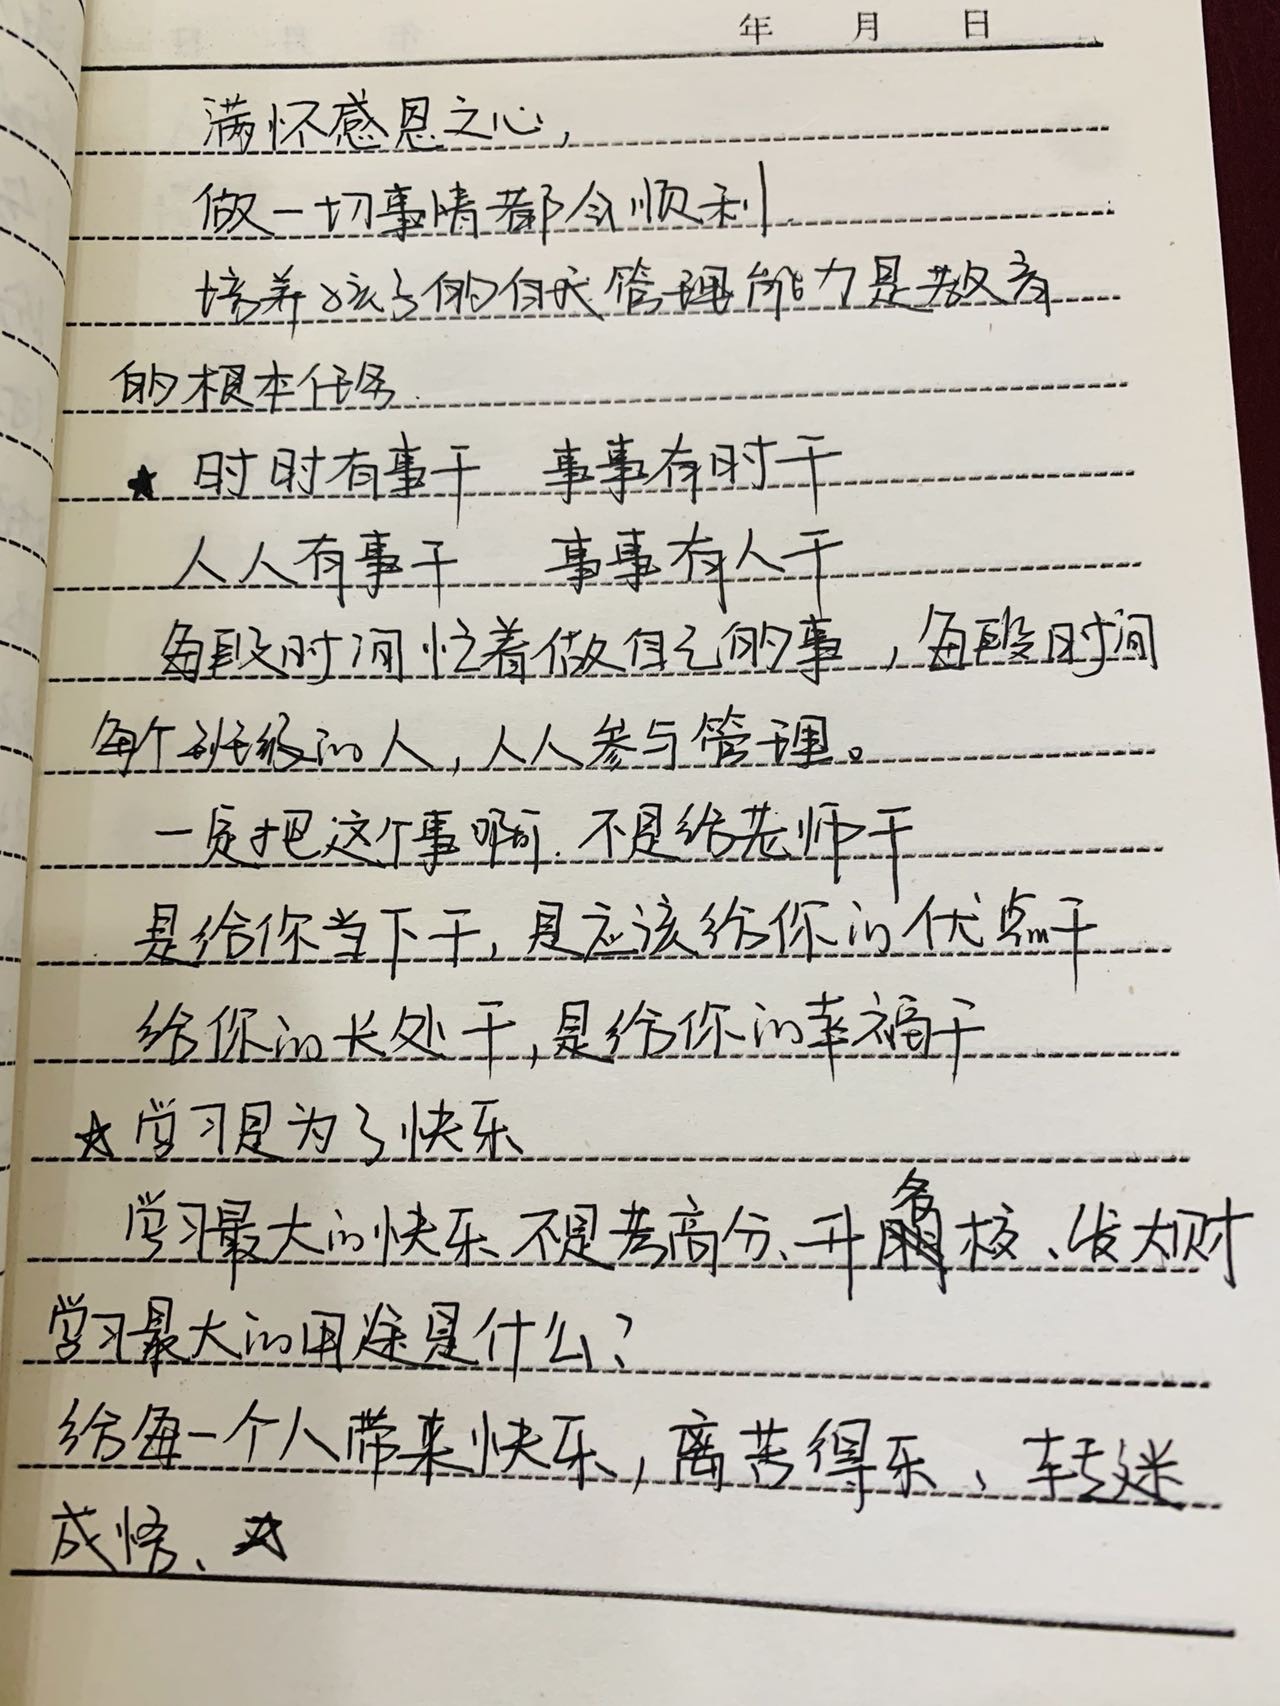 年 月 日
满怀感恩之心,
做一切事情都会顺利.
培养孩子的自我管理能力是教育
的根本任务.
★ 时时有事干 事事有时干
人人有事干 事事有人干
每段时间忙着做自己的事,每段时间
每个班级的人,人人参与管理。
一定把这个事啊.不是给老师干
是给你当下干,是应该给你的优点干
给你的长处干,是给你的幸福干
☆ 学习是为了快乐
学习最大的快乐不是考高分、升名校、发大财
学习最大的用途是什么?
给每一个人带来快乐,离苦得乐、转迷
成悟、☆